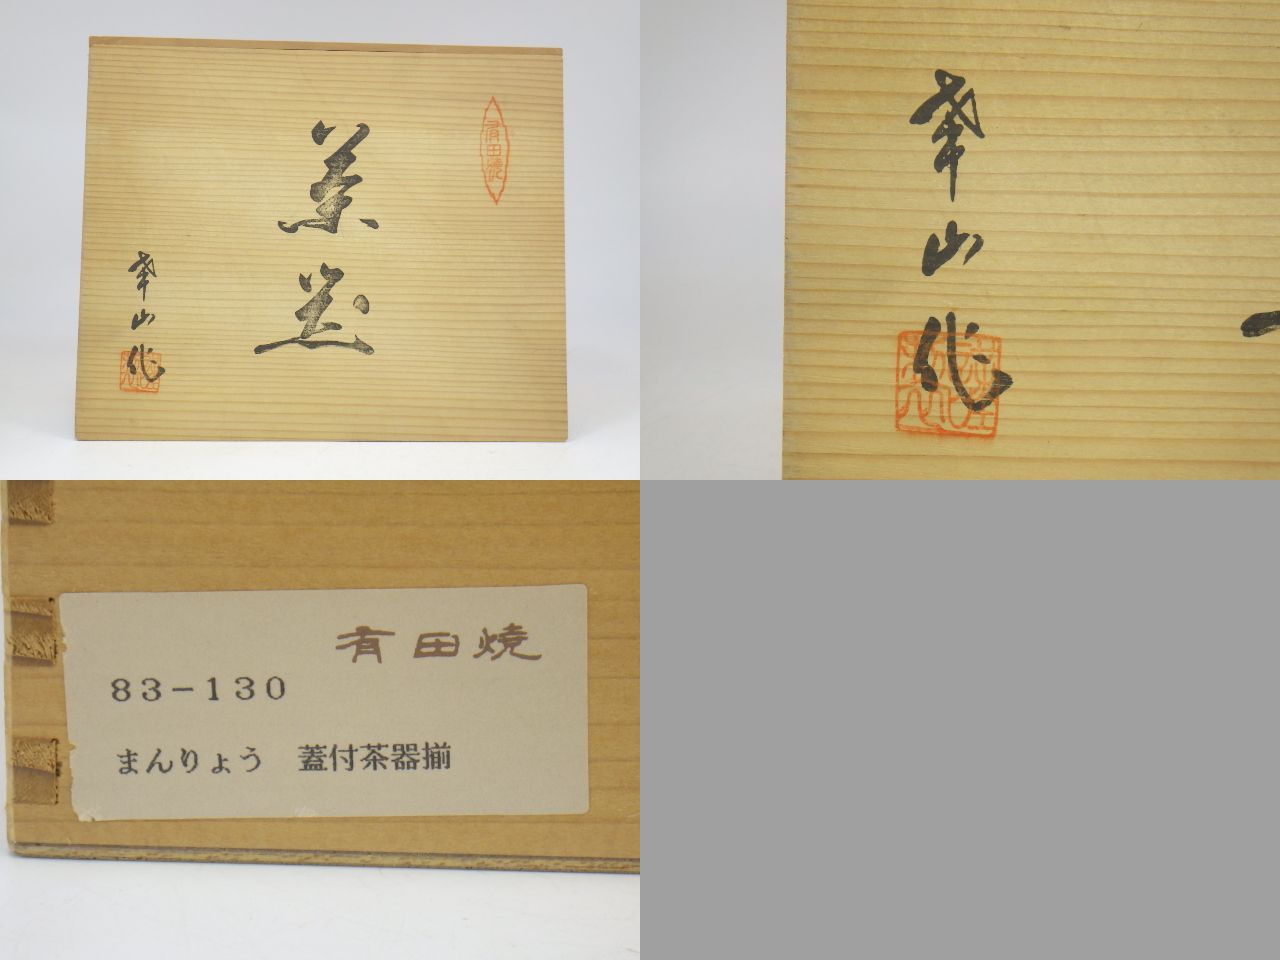 有田焼
茶器
山作
山作
有田焼
83-130
まんりょう 蓋付茶器揃